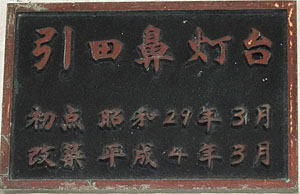 引田鼻灯台
初点 昭和29年3月
改築 平成4年3月